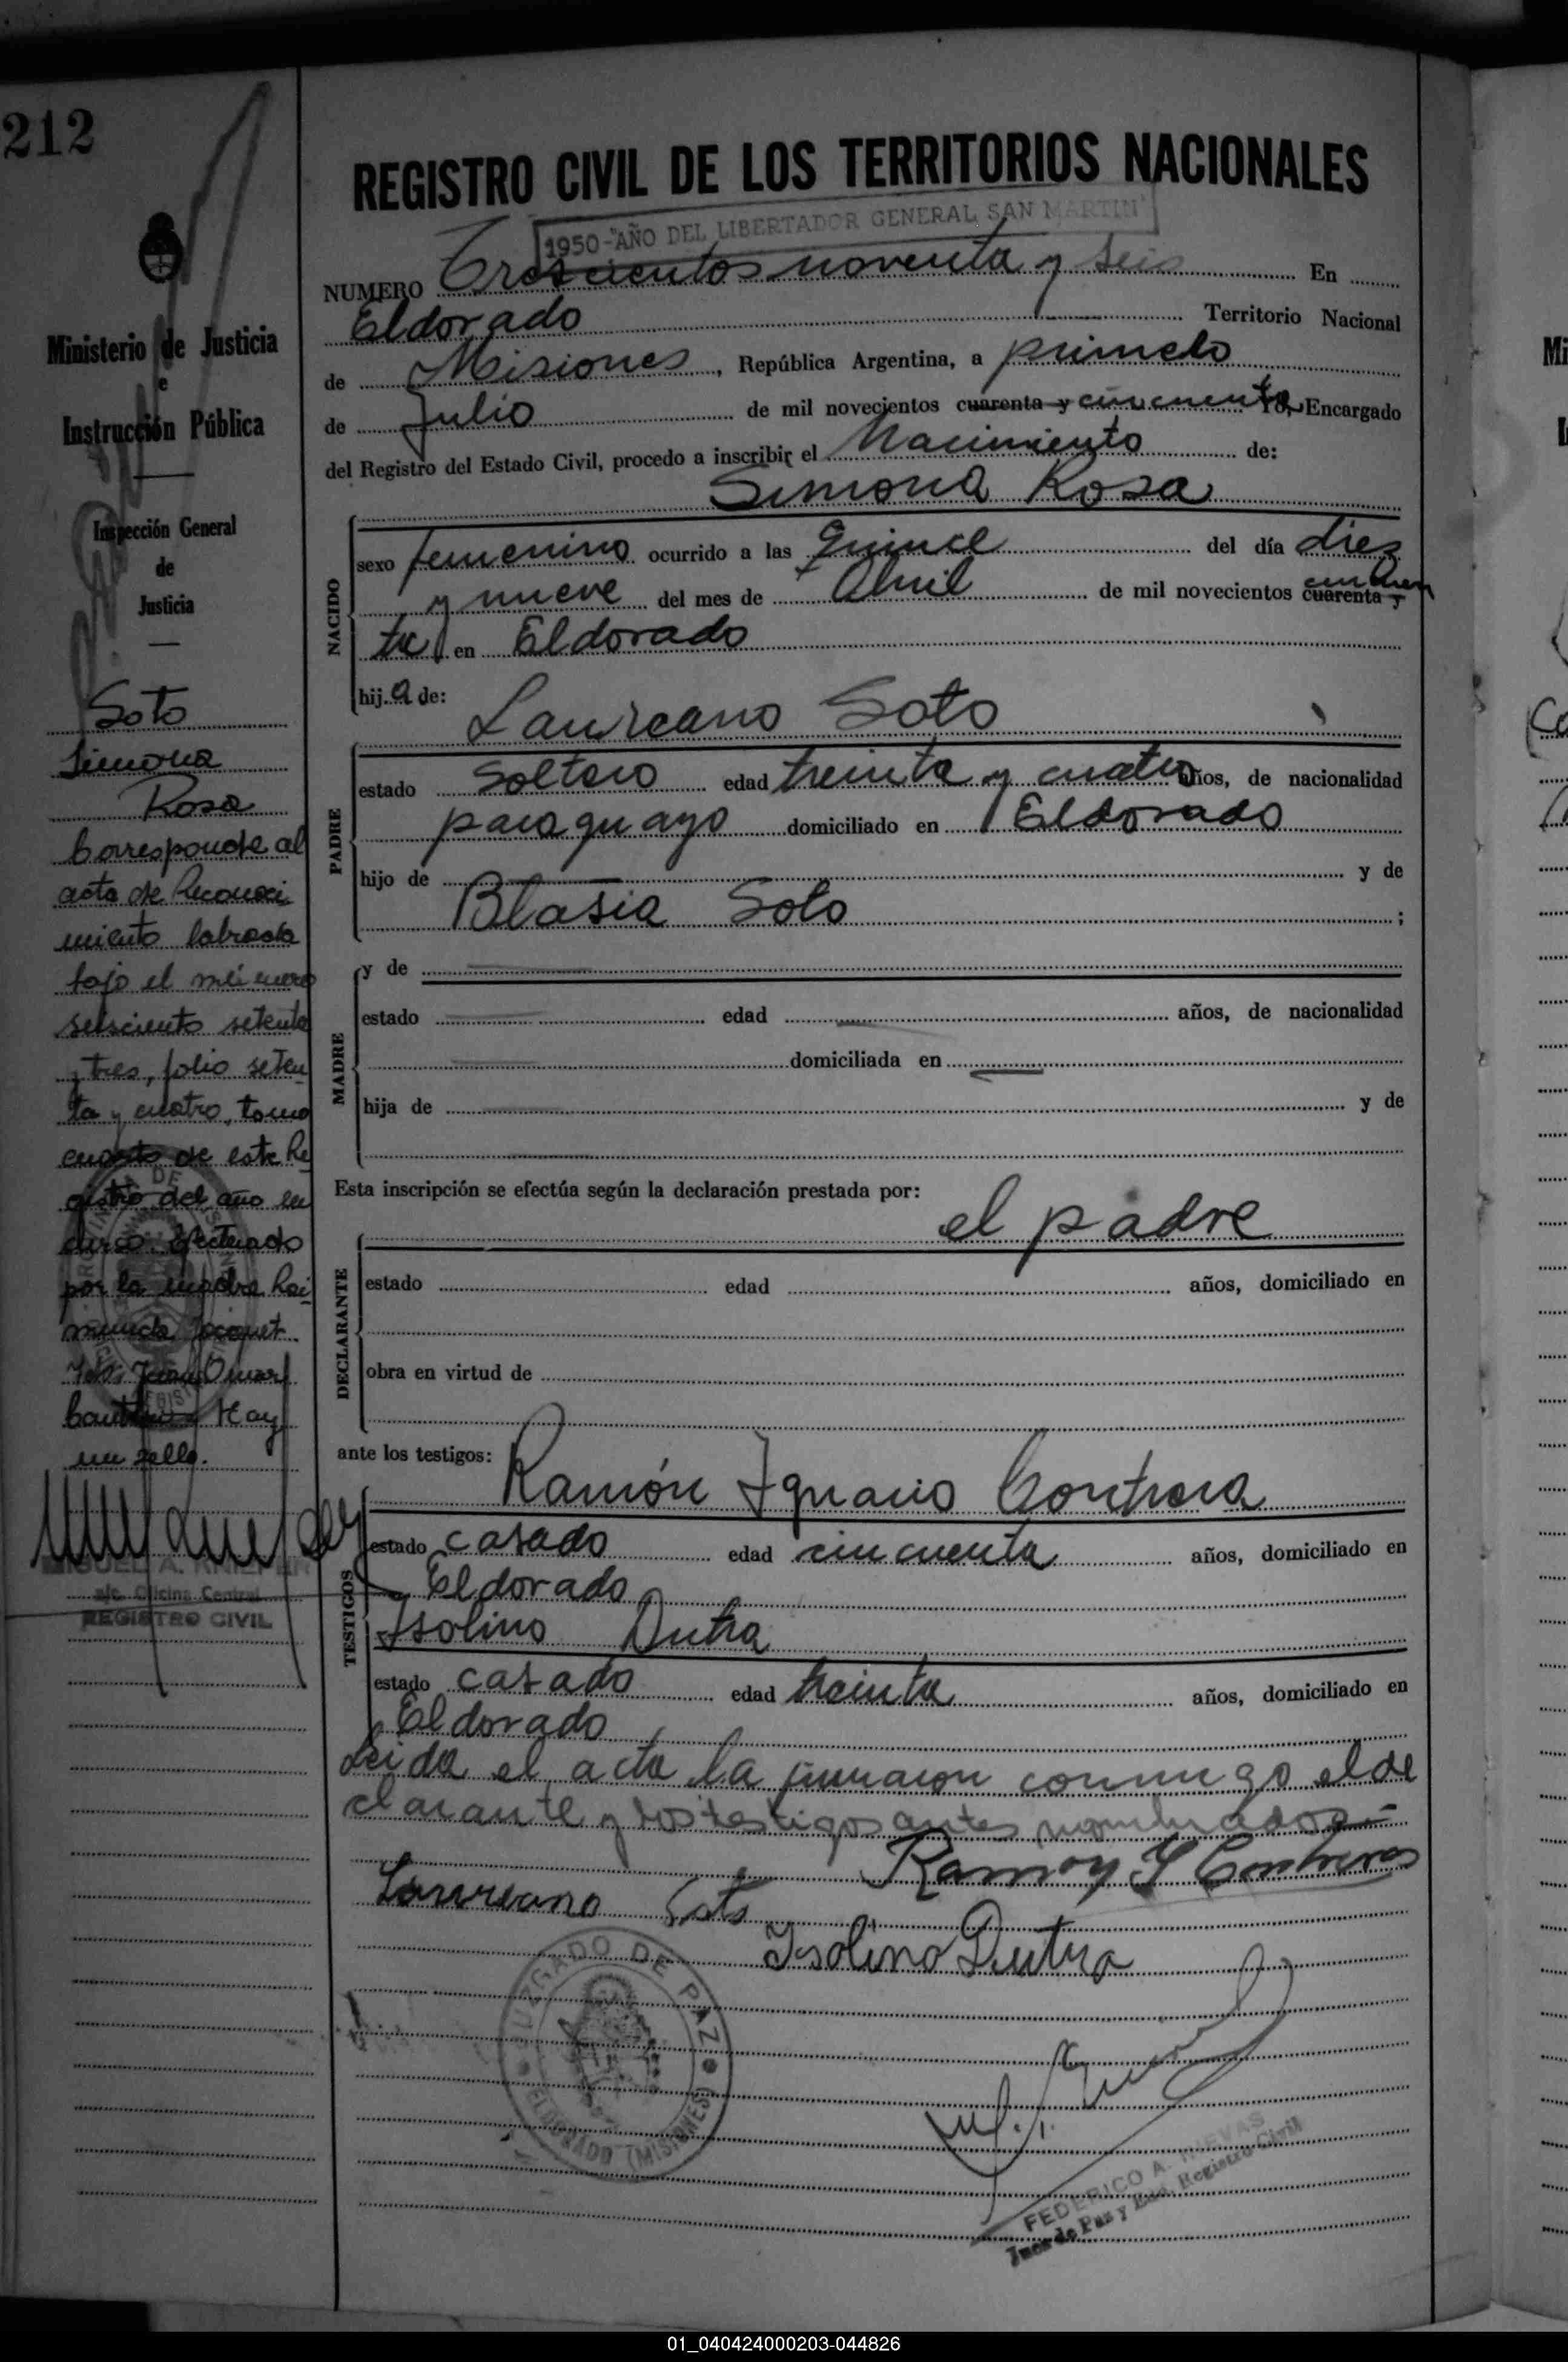 212
REGISTRO CIVIL DE LOS TERRITORIOS NACIONALES
1950-"AÑO DEL LIBERTADOR GENERAL SAN MARTIN"
NUMERO Trescientos noventa y seis En
Eldorado Territorio Nacional
de Misiones, República Argentina, a primero
de Julio de mil novecientos cuarenta y cincuenta Yo, Encargado
del Registro del Estado Civil, procedo a inscribir el Nacimiento de:
Simona Rosa
NACIDO
sexo femenino ocurrido a las quince del día diez
y nueve del mes de Abril de mil novecientos cuarenta y cincuen
ta en Eldorado
hija de:
Laureano Soto
PADRE
estado soltero edad treinta y cuatro años, de nacionalidad
paraguayo domiciliado en Eldorado
hijo de y de
Blasia Soto ;
MADRE
y de
estado edad años, de nacionalidad
domiciliada en
hija de y de
Esta inscripción se efectúa según la declaración prestada por:
el padre
DECLARANTE
estado edad años, domiciliado en
obra en virtud de
ante los testigos:
Ramón Ignacio Contrera
TESTIGOS
estado casado edad cincuenta años, domiciliado en
Eldorado
Isolino Dutra
estado casado edad treinta años, domiciliado en
Eldorado
Leida el acta la firmaron conmigo el de
clarante y los testigos antes nombrados.-
Ramon Y Contreras
Laureano Soto
Isolino Dutra
JUZGADO DE PAZ
ELDORADO (MISIONES)
FEDERICO A. CUEVAS
Juez de Paz y Enc. Registro Civil
Ministerio de Justicia
e
Instrucción Pública
Inspección General
de
Justicia
Soto
Simona
Rosa
Corresponde al
acta de Reconoci
miento labrada
bajo el número
seisciento setenta
y tres, folio seten
ta y cuatro, tomo
cuarto de este Re
gistro del año en
curso. Efectuado
por la madre Rai
munda
Juan Omar
Hay
un sello.
MIGUEL A.
a/c. Oficina Central
REGISTRO CIVIL
01_040424000203-044826